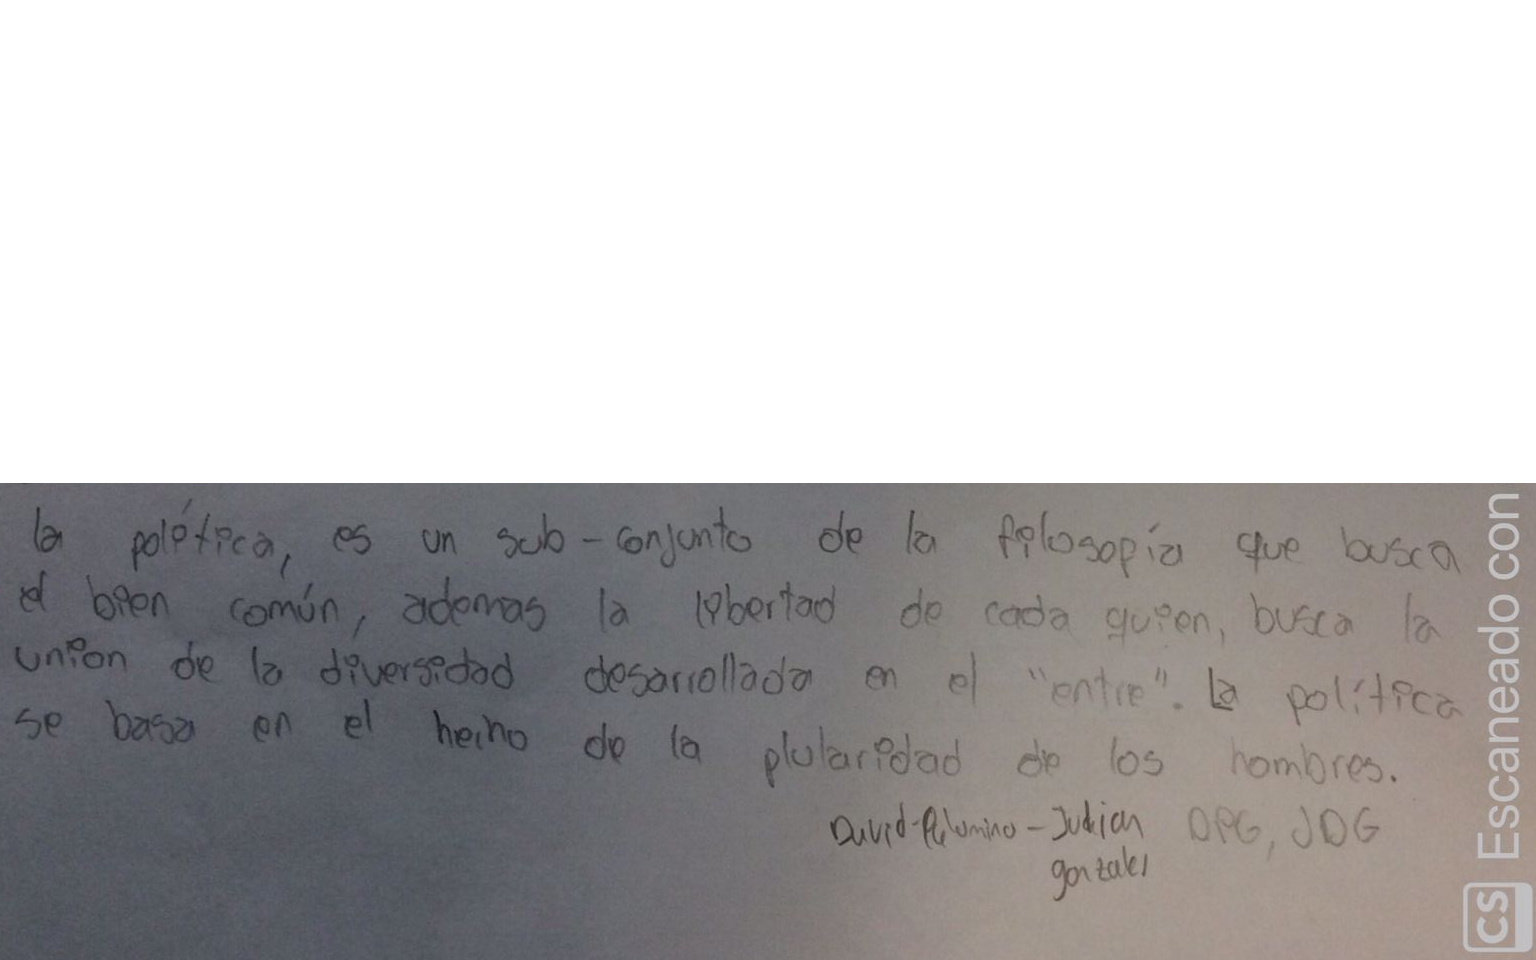 la política, es un sub-conjunto de la filosopía que busca
el bien común, ademas la libertad de cada quien, busca la
union de la diversidad desarrollada en el "entre". La política
se basa en el hecho de la plularidad de los hombres.
David-Palomino-Julian DPG, JDG
gonzales
Escaneado con
CS